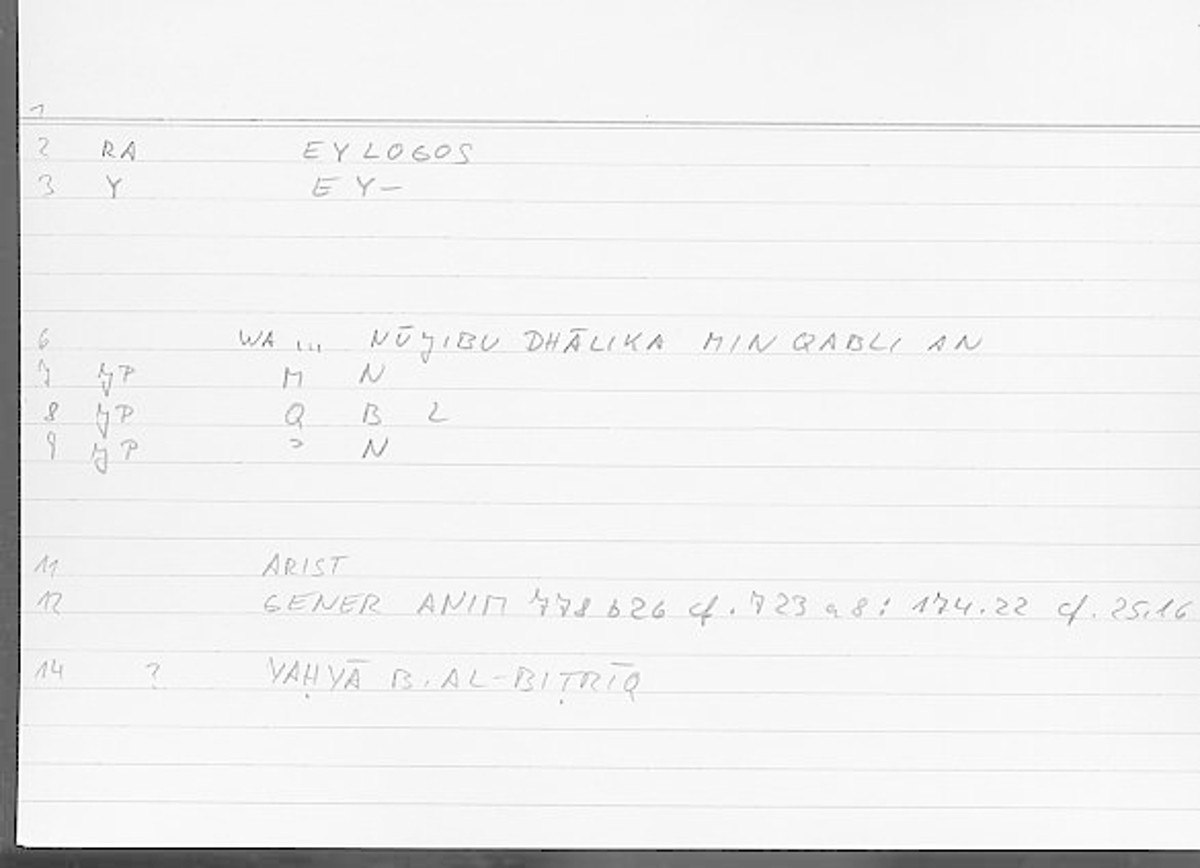 1
2 RA EYLOGOS
3 Y EY-
6 WA ... NŪJIBU DHĀLIKA MIN QABLI AN
7 JP M N
8 JP Q B L
9 JP ʾ N
11 ARIST
12 GENER ANIM 778 b26 cf. 723 a8: 174.22 cf. 25.16
14 ? YAḤYĀ B. AL-BIṬRĪQ